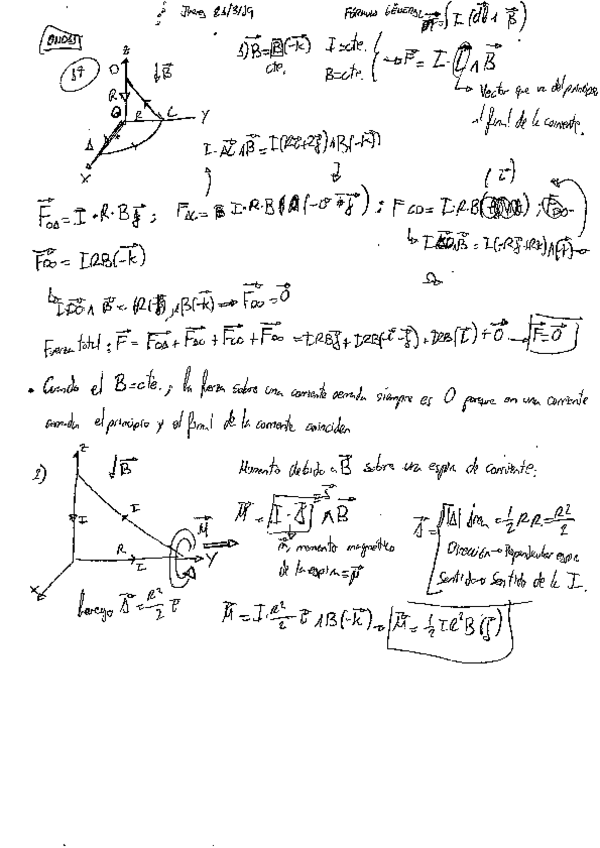 Jueves 21/3/19
FÓRMULA GENERAL → dF = ∫ I (dl ∧ B)
37
1) B = B(-k) I = cte.
cte. B = cte.
→ F = I · l ∧ B
→ Vector que va del principio
al final de la corriente.
Z
D
B
R
O R C Y
A
X
I · AC ∧ B = I(-Ri+Rj) ∧ B(-k)
F_OA = I · R · B j ; F_AC = I · R · B (-i -j) ; F_CD = I · R · B (-i) ; F_DO
F_DO = IRB(-k)
→ I CD ∧ B = I(-Rj+Rk) ∧
→ I DO ∧ B = R(-k) ∧ B(-k) → F_DO = 0
Fuerza total : F = F_OA + F_AC + F_CD + F_DO = IRBj + IRB(i - j) + IRB(-i) + 0 → F = 0
• Cuando el B = cte. ; la fuerza sobre una corriente cerrada siempre es 0 porque en una corriente
cerrada el principio y el final de la corriente coinciden
2)
Z
B
Momento debido a B sobre una espira de corriente:
I I
M
R I Y
X
M = I · S ∧ B
m, momento magnético
de la espira = μ
S = |S| área = 1/2 R R = R²/2
Dirección → Perpendicular espira
Sentido → Sentido de la I.
Luego S = R²/2 i
M = I · R²/2 i ∧ B(-k) → M = 1/2 I R² B (j)